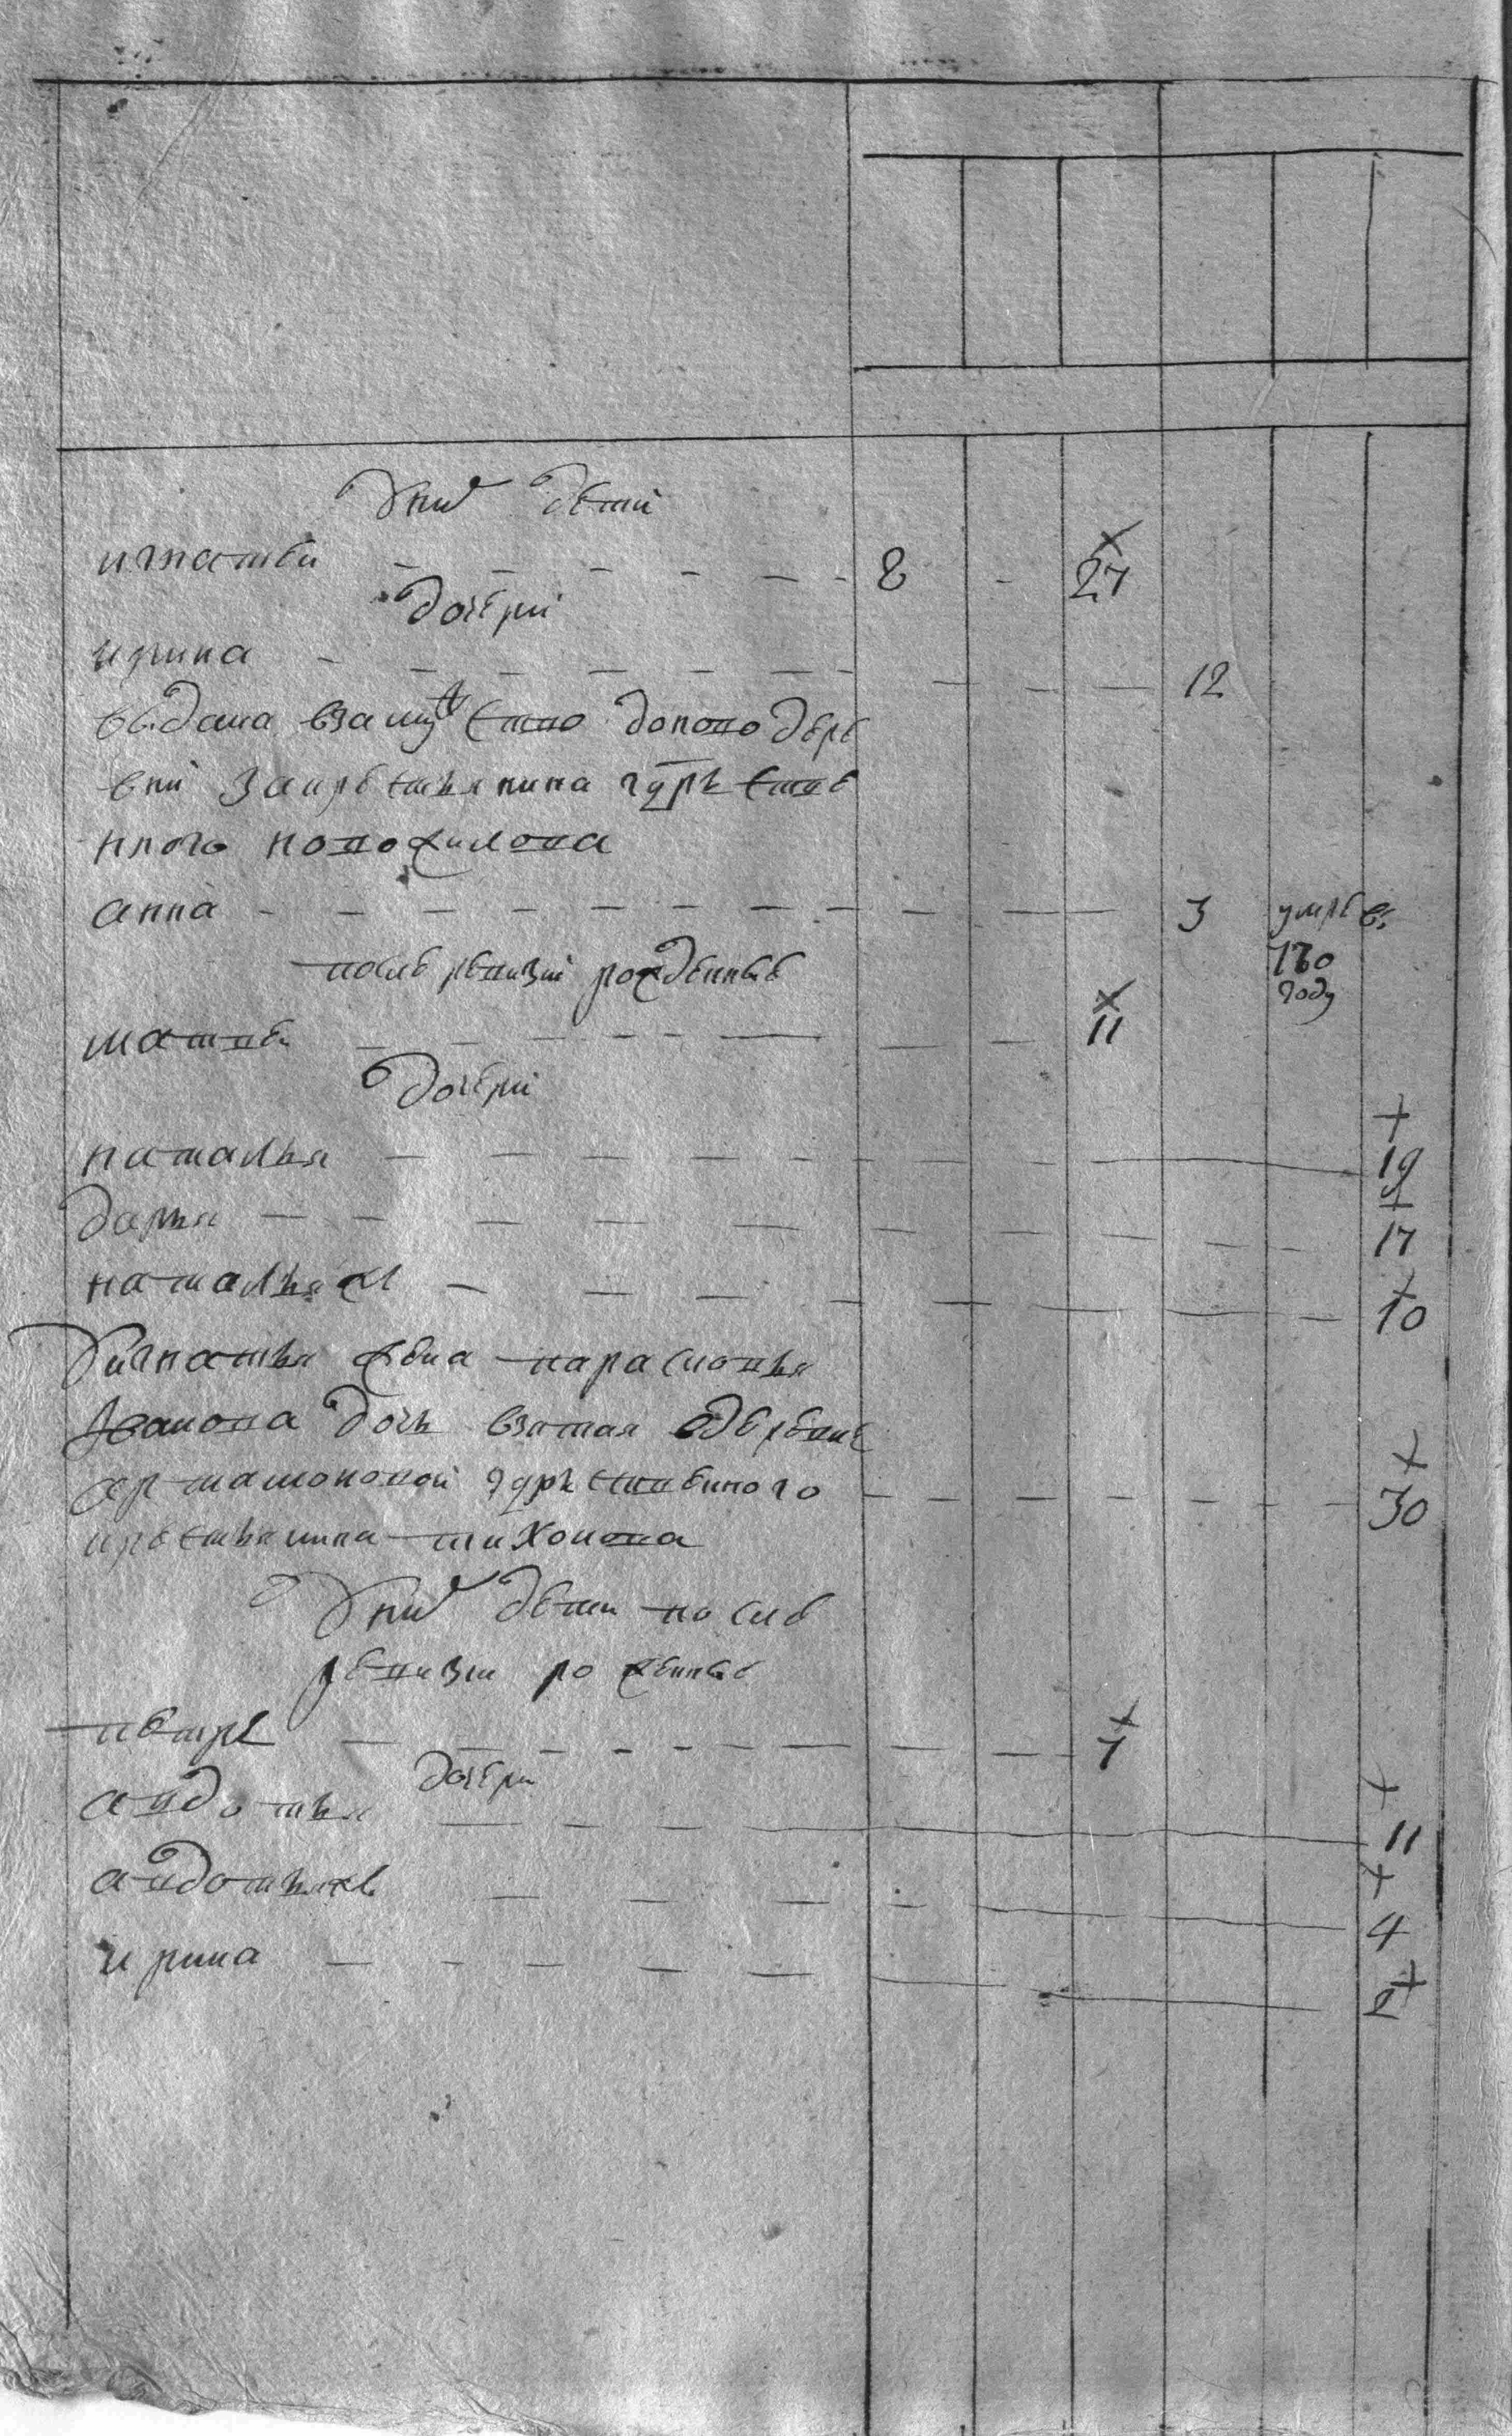 У них дети
игнатеи 8 27
дочери
ирина 12
выдана взамужство до ново дере
вни за крестьянина гдрьстве
нного
анна 3 умре в
780
году
после ревизии рожденные
матвеи 11
дочери
наталья 19
дарья 17
наталья ж 10
У игнатья жена парасковья
иванова дочь взятая з деревни
артамоновой гдрьственного 30
крестьянина тихонова
У них дети после
ревизии роженные
петръ 7
дочери
авдотья 11
авдотья ж 4
ирина 2